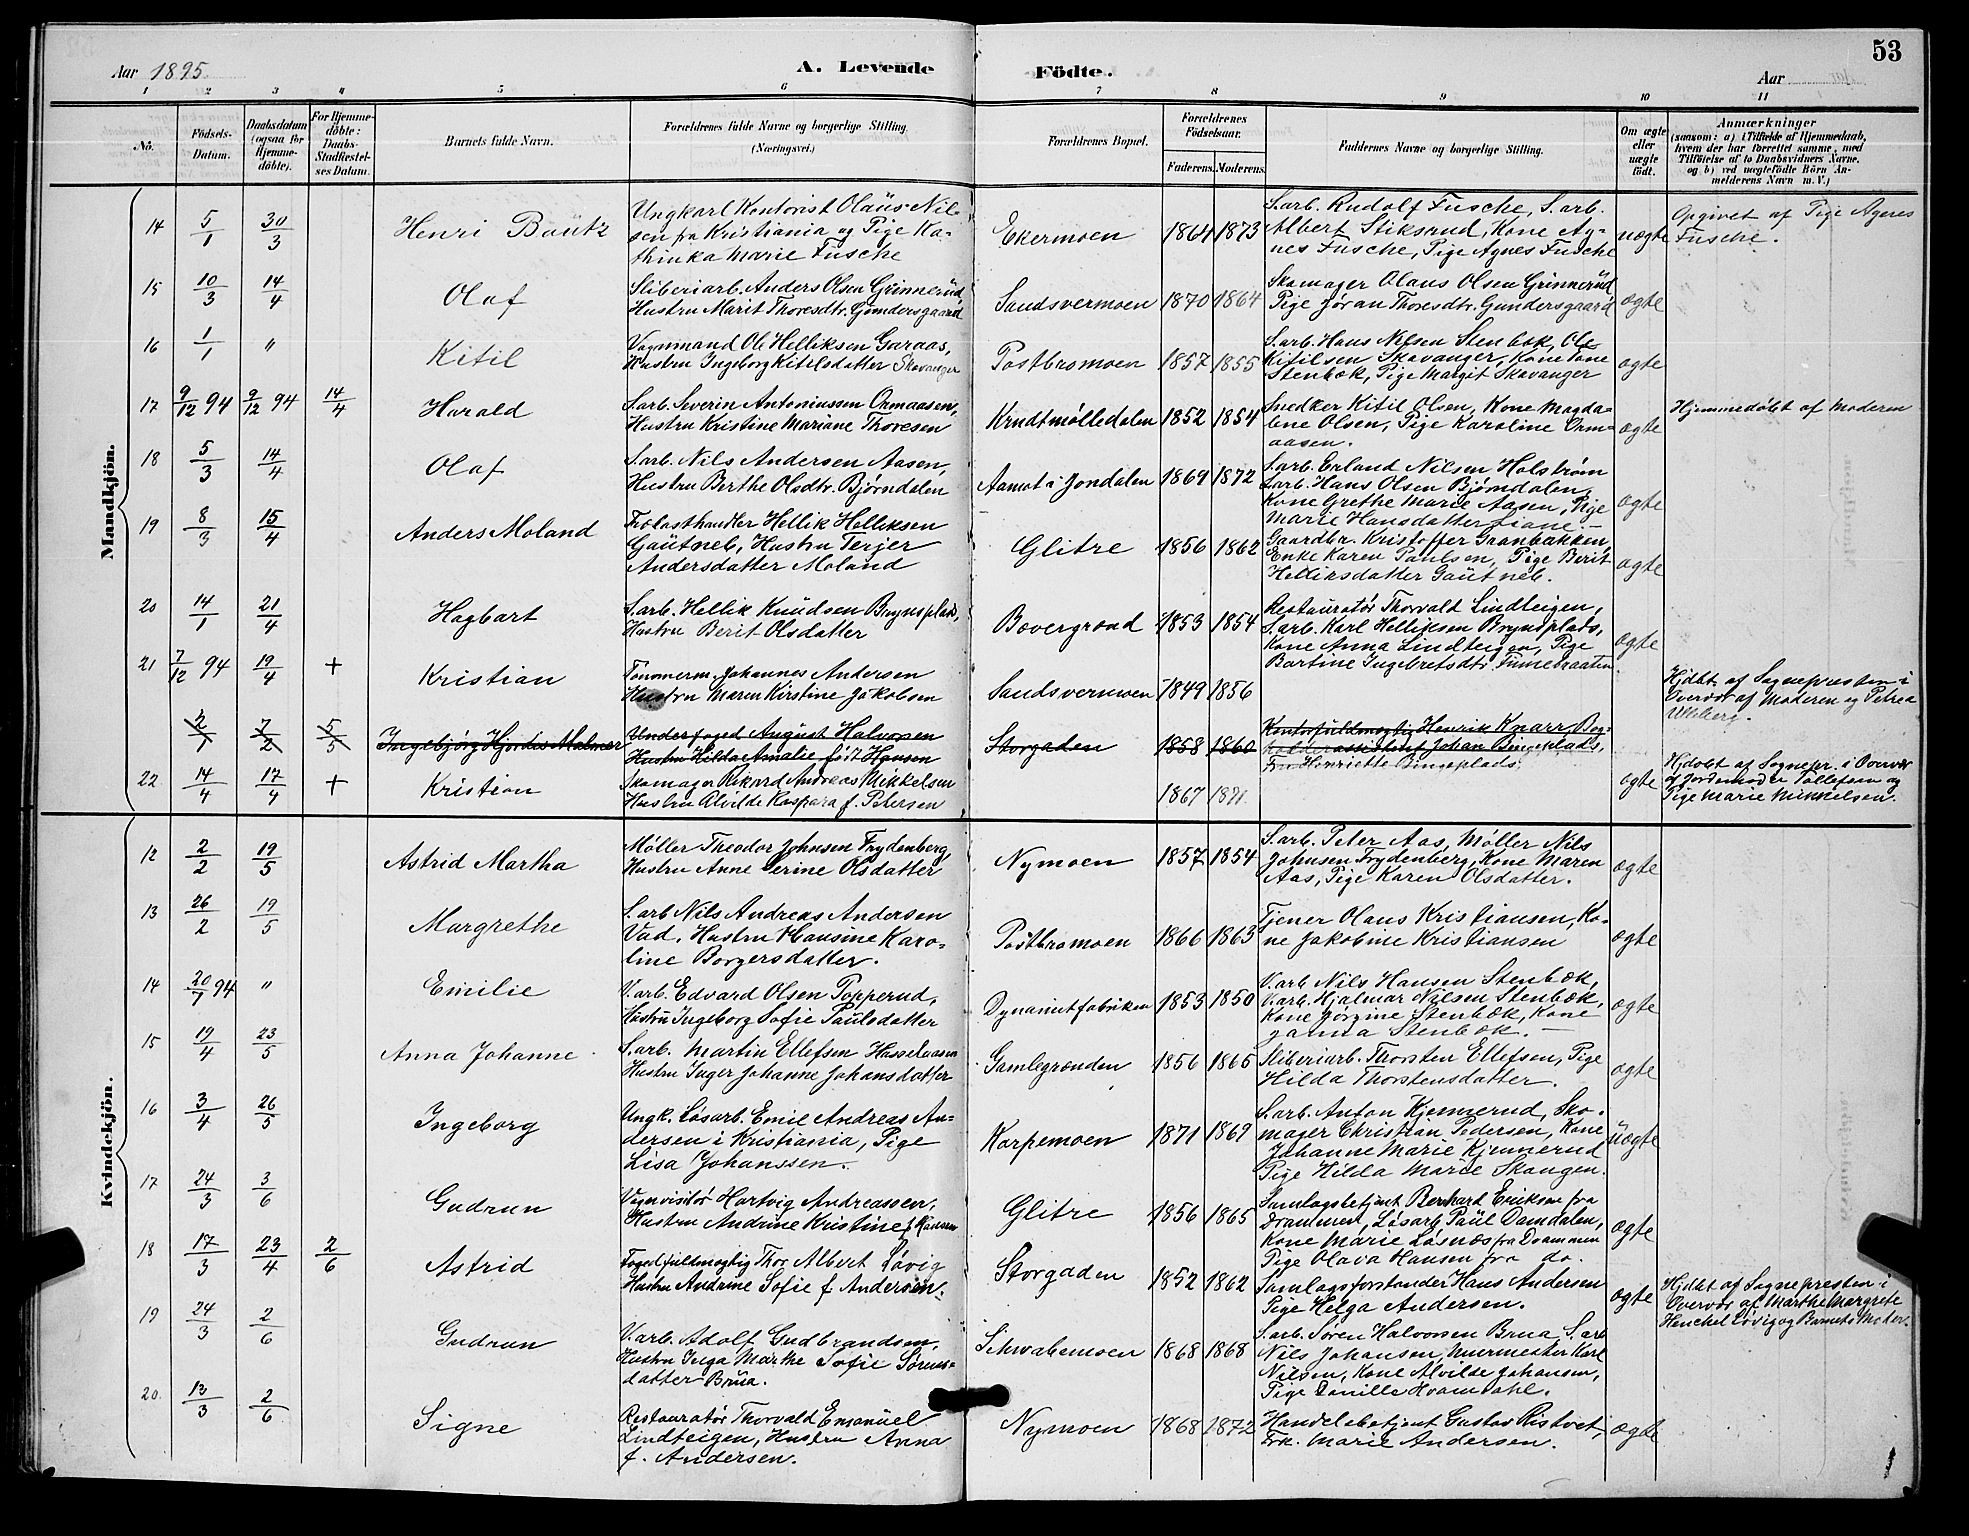 53
Aar 1895. A. Levende Födte. Aar
1 2 3 4 5 6 7 8 9 10 11
No. Födsels-Datum. Daabsdatum (ogsaa for Hjemme-döbte). For Hjemme-döbte: Daabs-Stadfæstel-ses Datum. Barnets fulde Navn. Forældrenes fulde Navne og borgerlige Stilling. (Næringsvei.) Forældrenes Bopæl. Forældrenes Födselsaar. Faderens. Moderens. Faddernes Navne og borgerlige Stilling. Om ægte eller uægte födt. Anmærkninger
(saasom: a) i Tilfælde af Hjemmedaab,
hvem der har forrettet samme, med
Tilföielse af to Daabsvidners Navne,
og b) ved uægtefödte Börn An-
melderens Navn m. V.)
Mandkjön.
14 5/1 30/3 Henri Bautz
Ungkarl Kontorist Olaüs Nil-
sen fra Kristiania og Pige Ka-
thinka Marie Fusche
Ekermoen 1864 1873
S.arb. Rudolf Fusche, S.arb.
Albert Stiksrud, Kone Ag-
nes Fusche, Pige Agnes Fusche
uægte
Opgivet af Pige Agnes
Fusche.
15 10/3 14/4 Olaf
Sliberiarb. Anders Olsen Grinnerüd
Hustru Marit Thoresdtr. Gundersgaard
Sandsvermoen 1870 1864
Skomager Olaus Olsen Grinnerüd
Pige Jøran Thoresdtr. Gundersgaard
ægte
16 1/1 " Kitil
Vognmand Ole Helliksen Garaas,
Hustru Ingeborg Kitilsdatter Skavanger
Postbromoen 1857 1855
S.arb. Hans Nilsen Stenbæk, Ole
Kitilsen Skavanger, Kone Tone
Stenbæk, Pige Margit Skavanger
ægte
17 9/12 94 9/12 94 14/4 Harald
S.arb. Severin Antoniussen Ormaasen,
Hustru Kristine Mariane Thoresen
Krudtmølledalen 1852 1854
Snedker Kitil Olsen, Kone Magda-
lene Olsen, Pige Karoline Orm-
aasen.
ægte
Hjemmedøbt af Moderen
18 5/3 14/4 Olaf
S.arb. Nils Andersen Aasen,
Hustru Berthe Olsdtr. Bjørndalen
Aamot i Jondalen 1869 1872
S.arb. Erland Nilsen Holstrøm
S.arb. Hans Olsen Bjørndalen,
Kone Grethe Marie Aasen, Pige
Marie Hansdatter Liane.
ægte
19 8/3 15/4 Anders Moland
Trælasthandler Hellik Helliksen
Gaütneb, Hustru Terjer
Andersdatter Moland
Glitre 1856 1862
Gaardbr. Kristoffer Granbakken,
Enke Karen Paulsen, Pige Berit
Helliksdatter Gaütneb.
ægte
20 14/1 21/4 Hagbart
S.arb. Hellik Knüdsen Brynsplads,
Hustru Berit Olsdatter
Bævergrænd 1853 1854
Restauratør Thorvald Lindteigen,
S.arb. Karl Helliksen Brynsplads,
Kone Anna Lindteigen, Pige
Bartine Ingebretsdtr. Finnebraaten
ægte
21 7/12 94 19/4 + Kristian
Tømmerm. Johannes Andersen
Hustru Maren Kirstine Jakobsen
Sandsvermoen 1849 1856
Hjdbt. af Sognepresten i
Overvær af Moderen og Petrea
2/1 7/2 5/5 Ingebjørg Hjørdis Malmer
Underfoged August Halvorsen
Hustru Hilda Amalie født Hansen
Storgaden 1858 1860
Kontorfuldmægtig Henrik Knarr, Bog-
holderassistent Johan Bingeplads,
Fru Henriette Bingeplads.
22 14/4 17/4 + Kristian
Skomager Rikard Andreas Mikkelsen
Hustru Alvilde Kaspara f. Petersen
1867 1871
ægte
Hjdøbt af Sognepr. i Overvær
af Jordemoder Tollefsen og
Pige Marie Mikkelsen.
Kvindekjön.
12 2/2 19/5 Astrid Martha
Møller Theodor Johnsen Frydenberg,
Hustru Anne Serine Olsdatter
Nymoen 1857 1854
S.arb. Peter Aas, Møller Nils
Johnsen Frydenberg, Kone Maren
Aas, Pige Karen Olsdatter.
ægte
13 26/2 19/5 Margrethe
S.arb Nils Andreas Andersen
Vad, Hustru Hansine Karo-
line Borgersdatter.
Postbromoen 1866 1863
Tjener Olaus Kristiansen, Ko-
ne Jakobine Kristiansen
ægte
14 20/7 94 " Emilie
V.arb. Edvard Olsen Topperud,
Hustrü Ingeborg Sofie Paulsdatter
Dynamitfabriken 1853 1850
V.arb Nils Hansen Stenbæk,
V.arb. Hjalmar Nilsen Stenbæk,
Kone Jørgine Stenbæk, Kone
Janna Stenbæk.
ægte
15 19/4 23/5 Anna Johanne
S.arb. Martin Ellefsen Hasselaasen
Hustru Inger Johanne Johansdatter
Gamlegrænden 1856 1865
Sliberiarb. Thorsten Ellefsen, Pige
Hilda Thorstensdatter.
ægte
16 3/4 26/5 Ingeborg
Ungk. Løsarb. Emil Andreas An-
dersen i Kristiania, Pige
Lisa Johanssen.
Karpemoen 1871 1869
S.arb. Anton Kjennerud, Sko-
mager Christian Pedersen, Kone
Johanne Marie Kjennerud
Pige Hilda Marie Skaugen.
üægte
17 24/3 3/6 Gudrun
Vognvisitør Hartvig Andreassen,
Hustru Andrine Kristine f.
Glitre 1856 1865
Samlagsbetjent Bernhard Eriksen fra
Drammen, Løsarb. Paül Damdalen,
Kone Marie Løsnæs fra Drammen
Pige Olava Hansen fra do.
ægte
18 17/3 23/4 2/6 Astrid
Fogedfuldmægtig Thor Albert Løvig
Hustru Andrine Sofie f. Andersen.
Storgaden 1852 1862
Samlagsforstander Hans Andersen
Pige Helga Andersen.
ægte
Hjdbt af Sognepresten i
Overvær af Marthe Margrete
Henchel Løvig og Barnets Moder.
19 24/3 2/6 Gudrun
V.arb. Adolf Gudbrandsen,
Hustru Inga Marthe Sofie Sørens-
datter Brüa.
Schwabemoen 1868 1868
S.arb. Søren Halvorsen Brua, S.arb
Nils Johansen, Murmester Karl
Nilsen, Kone Alvilde Johansen,
Pige Danille Hvamdahl.
20 13/3 2/6 Signe
Restauratør Thorvald Emanüel
Lindteigen, Hustru Anna
f. Andersen.
Nymoen 1868 1872
Handelsbetjent Gustav Ristvet,
Frk. Marie Andersen.
ægte